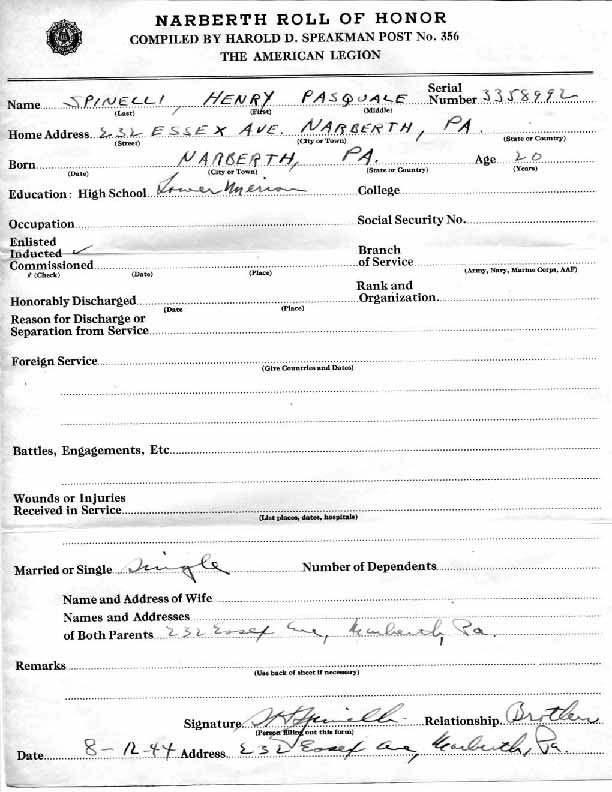 NARBERTH ROLL OF HONOR
COMPILED BY HAROLD D. SPEAKMAN POST No. 356
THE AMERICAN LEGION
Name SPINELLI, HENRY PASQUALE Serial Number 3358992
(Last) (First) (Middle)
Home Address 232 ESSEX AVE. NARBERTH, PA.
(Street) (City or Town) (State or Country)
Born NARBERTH, PA. Age 20
(Date) (City or Town) (State or Country) (Years)
Education: High School Lower Merion College
Occupation Social Security No.
Enlisted
Inducted ✓ Branch
Commissioned of Service
(Check) (Date) (Place) (Army, Navy, Marine Corps, AAF)
Rank and
Honorably Discharged Organization
(Date (Place)
Reason for Discharge or
Separation from Service
Foreign Service
(Give Countries and Dates)
Battles, Engagements, Etc
Wounds or Injuries
Received in Service
(List places, dates, hospitals)
Married or Single Single Number of Dependents
Name and Address of Wife
Names and Addresses
of Both Parents 232 Essex Ave, Narberth, Pa.
Remarks
(Use back of sheet if necessary)
Signature Spinelli Relationship Brother
(Person filling out this form)
Date 8-12-44 Address 232 Essex Ave, Narberth, Pa.